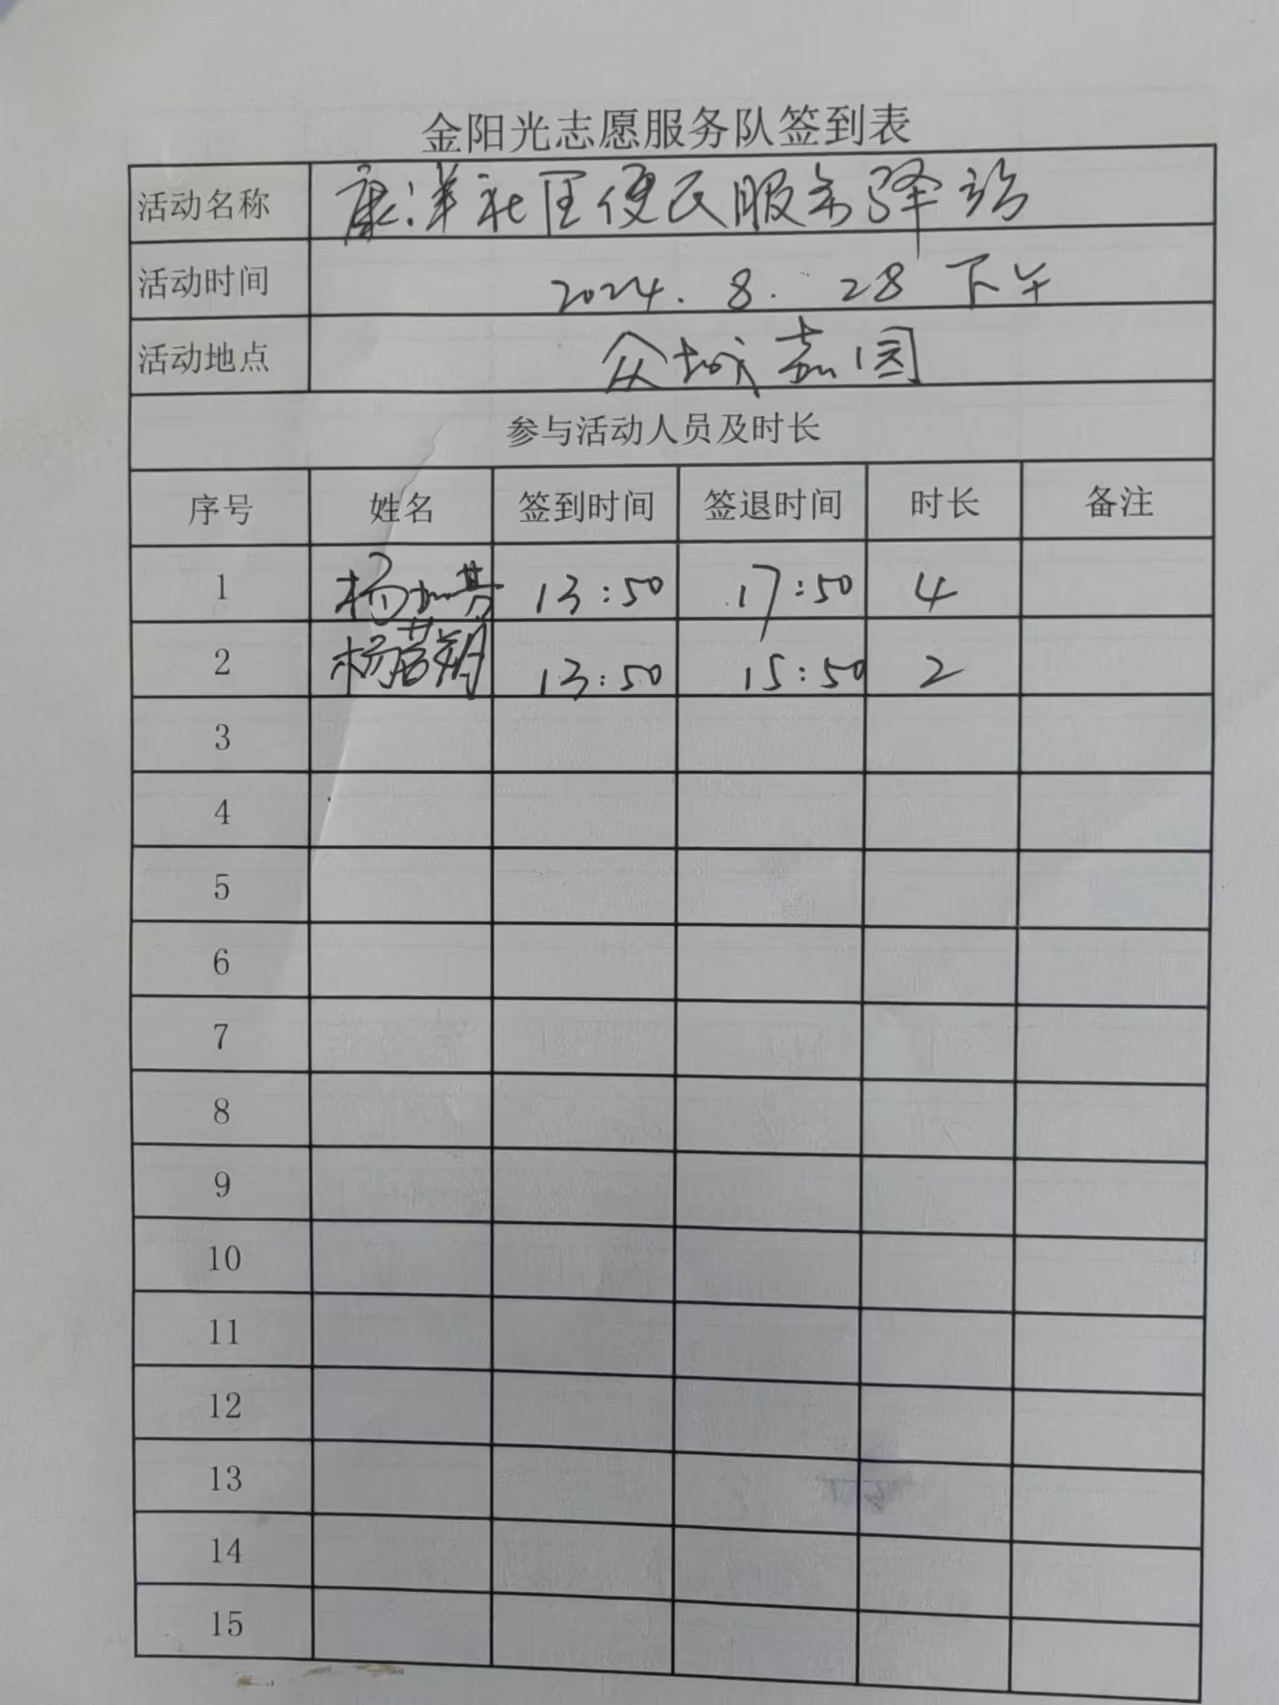 金阳光志愿服务队签到表
活动名称 康洋社区便民服务驿站
活动时间 2024.8.28下午
活动地点 众城嘉园
参与活动人员及时长
序号 姓名 签到时间 签退时间 时长 备注
1 杨 13:50 17:50 4
2 杨 13:50 15:50 2
3
4
5
6
7
8
9
10
11
12
13
14
15